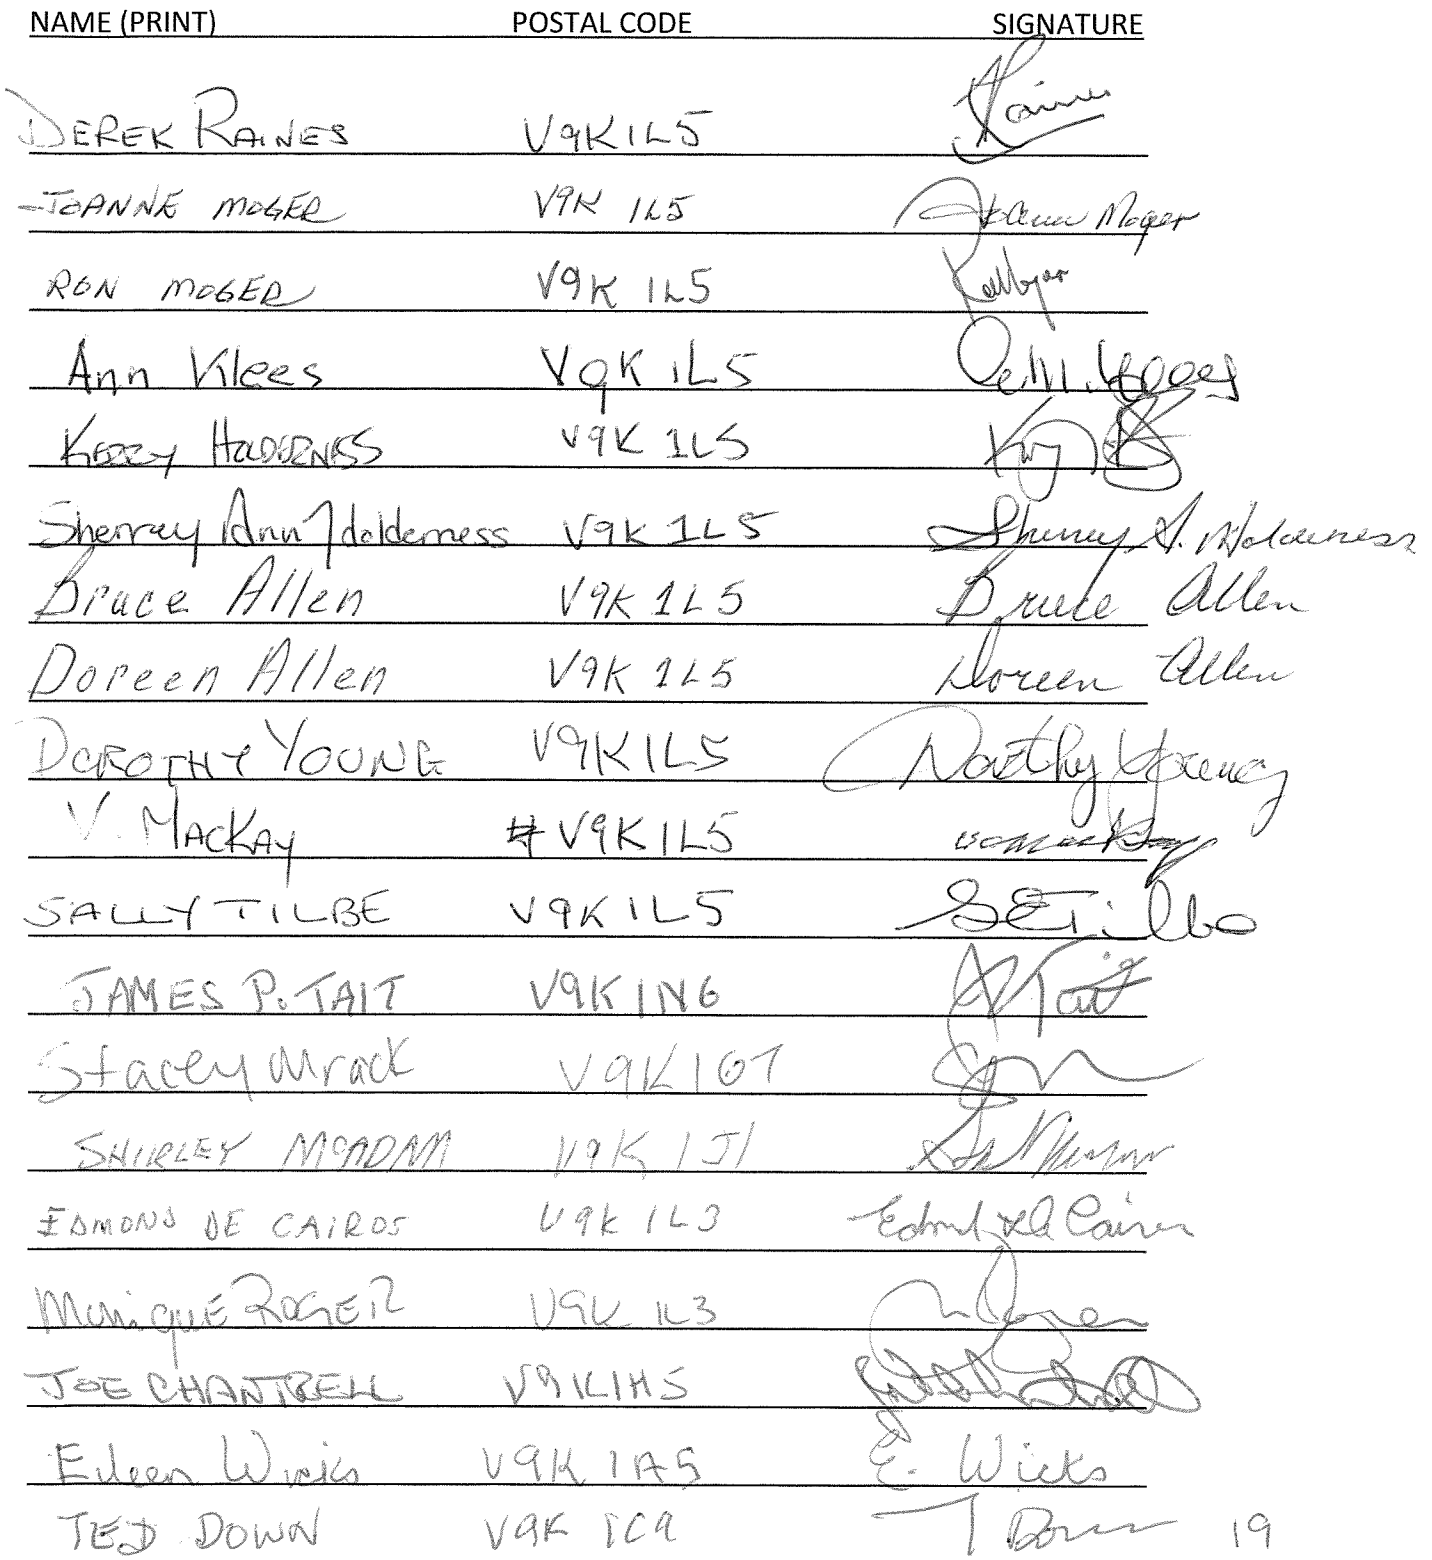 NAME (PRINT) POSTAL CODE SIGNATURE
DEREK RAINES V9K1L5 Raines
JOANNE MOGER V9K 1L5 Joanne Moger
RON MOGER V9K 1L5
Ann Klees V9K 1L5
KERRY HOLDERNESS V9K 1L5
Sherray Ann Holderness V9K 1L5 Sherray A. Holderness
Bruce Allen V9K 1L5 Bruce Allen
Doreen Allen V9K 1L5 Doreen Allen
DOROTHY YOUNG V9K1L5 Dorothy Young
V. MACKAY # V9K1L5
SALLY TILBE V9K1L5 SETilbe
JAMES P. TAIT V9K1N6 Tait
Stacey Mrack V9K1G7
SHIRLEY MCADAM V9K 1J1
EDMOND DE CAIROS V9K 1L3 Edmond de Cairos
Monique ROGER V9K 1L3
JOE CHANTRELL V9K1H5
Eileen Wicks V9K 1A5 E. Wicks
TED DOWN V9K 1C9 T Down 19